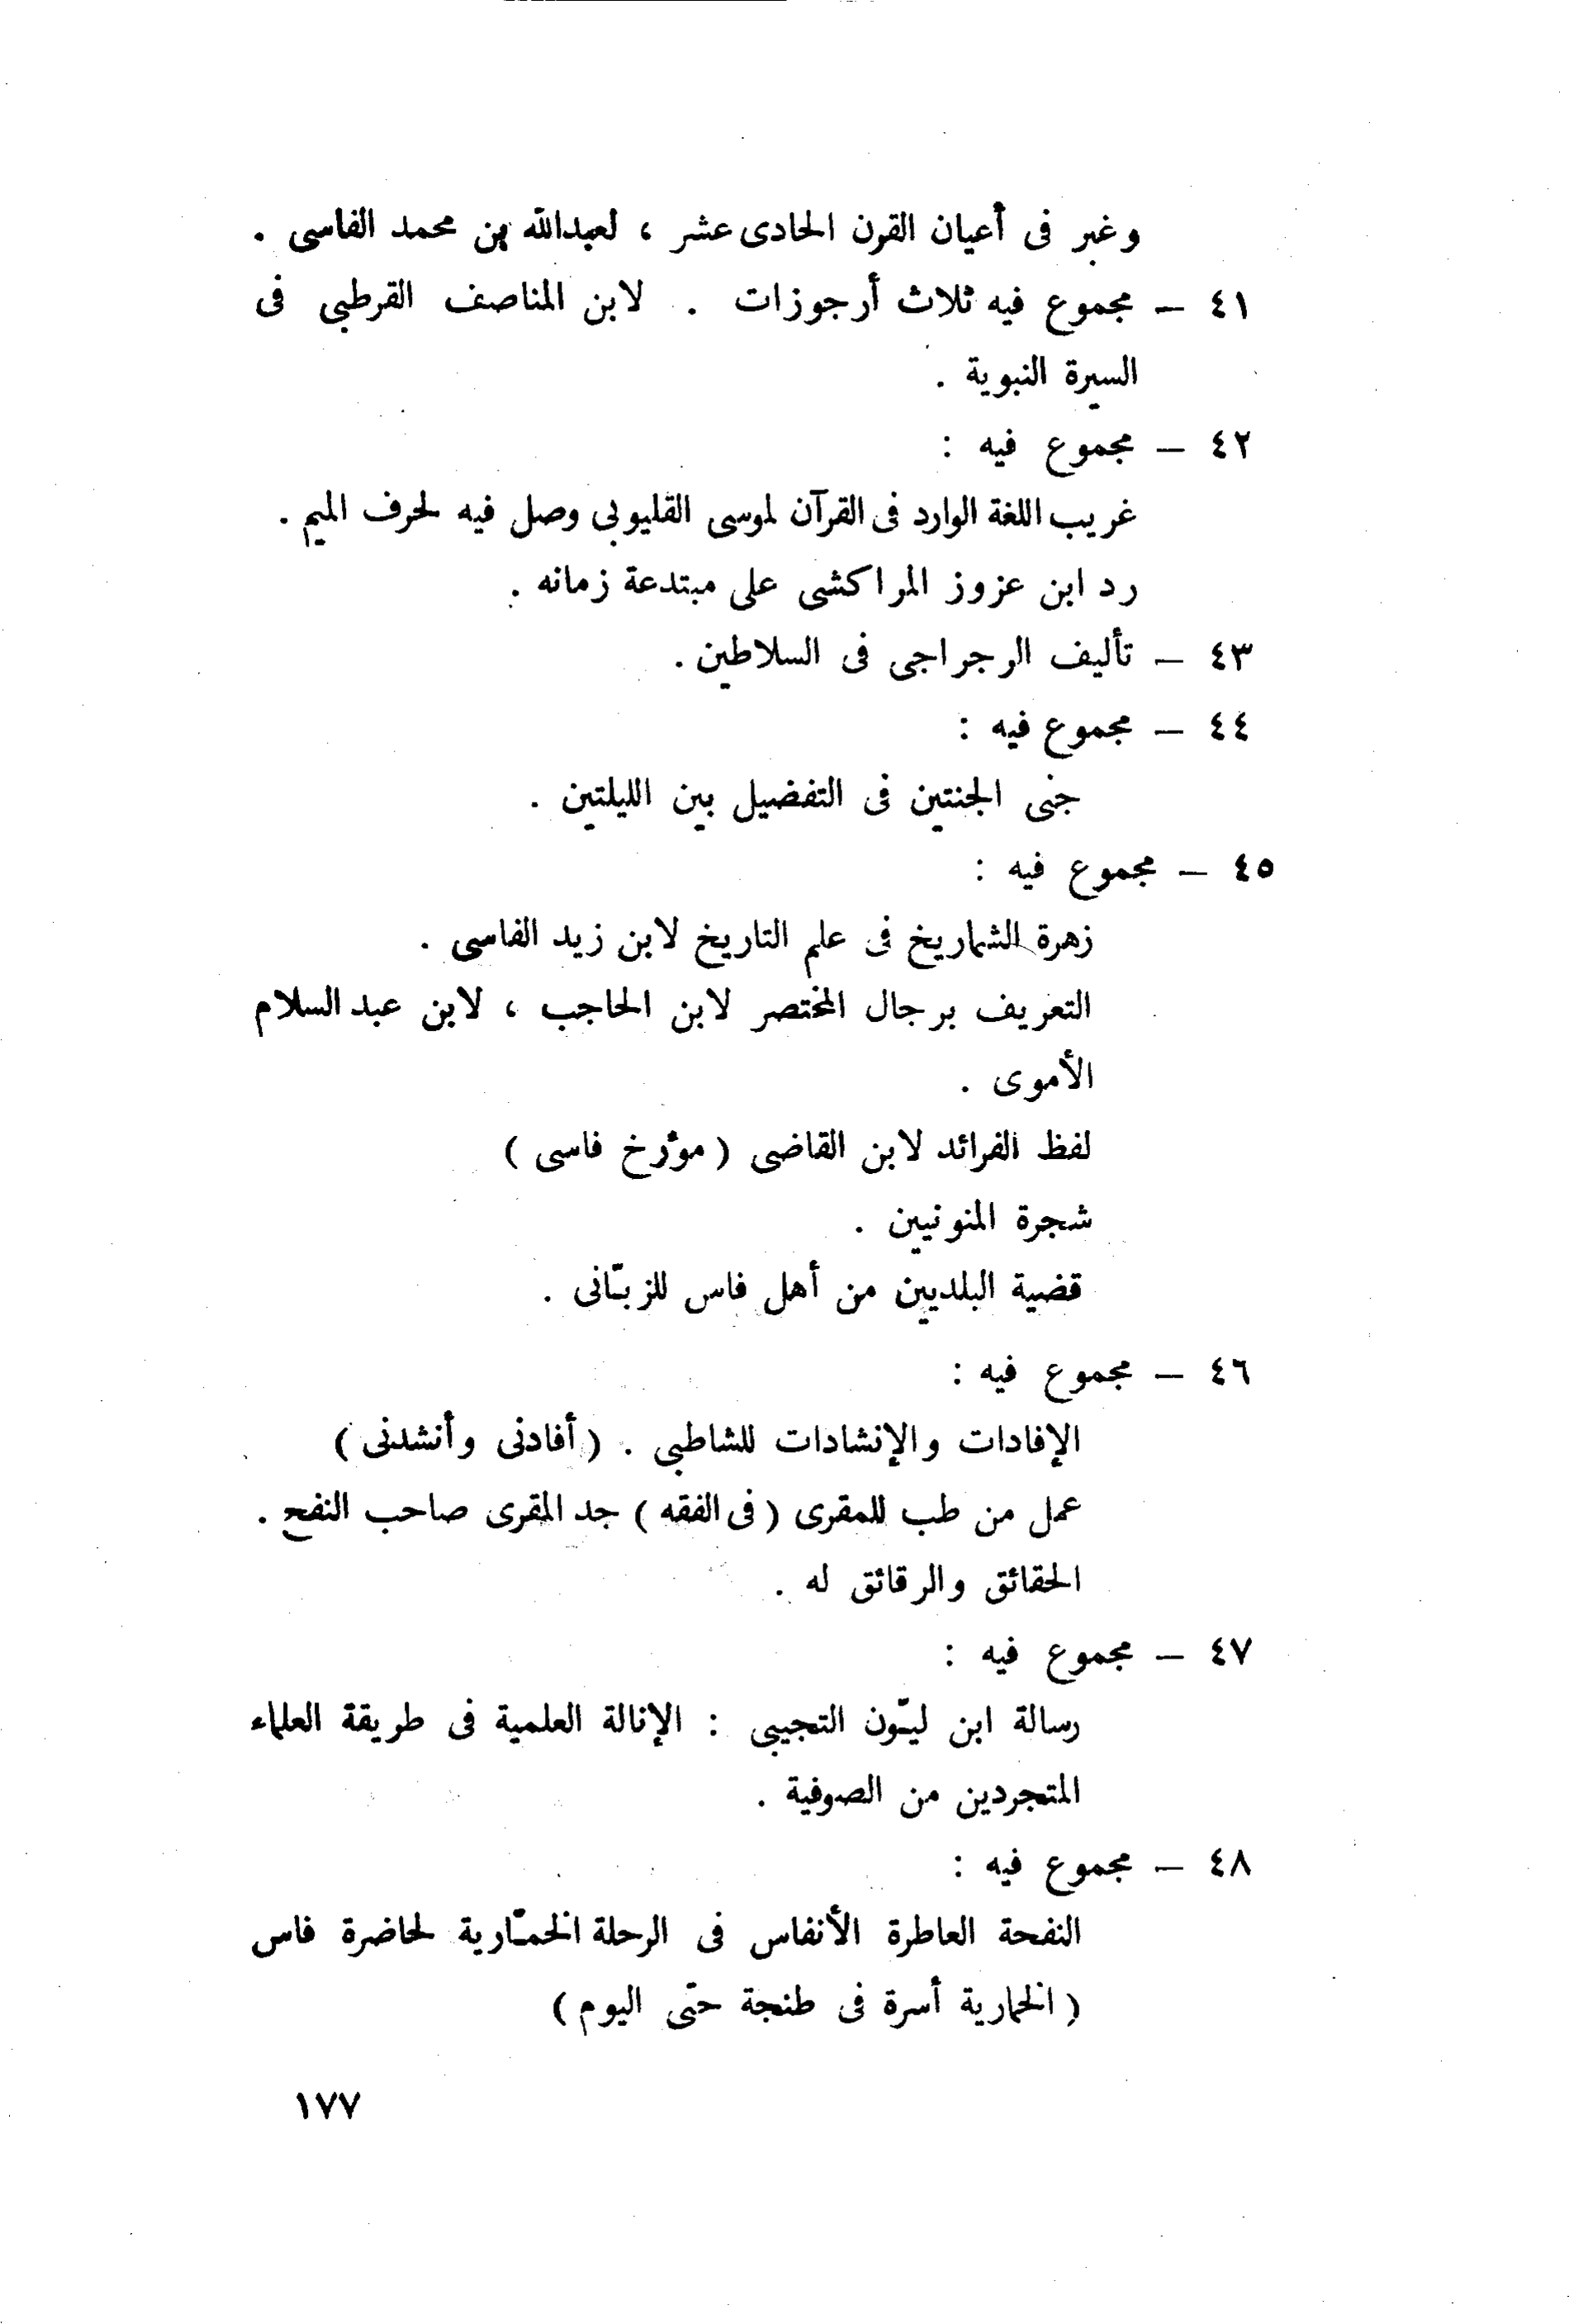 وغبر فى أعيان القرن الحادى عشر ، لعبدالله بن محمد الفاسى .
٤١ – مجموع فيه ثلاث أرجوزات . لابن المناصف القرطبى فى
السيرة النبوية .
٤٢ – مجموع فيه :
غريب اللغة الوارد فى القرآن لموسى القليوبى وصل فيه لحرف الميم .
رد ابن عزوز المراكشى على مبتدعة زمانه .
٤٣ – تأليف الرجراجى فى السلاطين .
٤٤ – مجموع فيه :
جنى الجنتين فى التفضيل بين الليلتين .
٤٥ – مجموع فيه :
زهرة الشماريخ فى علم التاريخ لابن زيد الفاسى .
التعريف برجال المختصر لابن الحاجب ، لابن عبد السلام
الأموى .
لفظ الفرائد لابن القاضى ( مؤرخ فاسى )
شجرة المنونيين .
قضية البلديين من أهل فاس للزبّانى .
٤٦ – مجموع فيه :
الإفادات والإنشادات للشاطبى . ( أفادنى وأنشدنى )
عمل من طب للمقرى ( فى الفقه ) جد المقرى صاحب النفح .
الحقائق والرقائق له .
٤٧ – مجموع فيه :
رسالة ابن ليّون التجيبى : الإنالة العلمية فى طريقة العلماء
المتجردين من الصوفية .
٤٨ – مجموع فيه :
النفحة العاطرة الأنفاس فى الرحلة الخمّارية لحاضرة فاس
( الخمارية أسرة فى طنجة حتى اليوم )
١٧٧